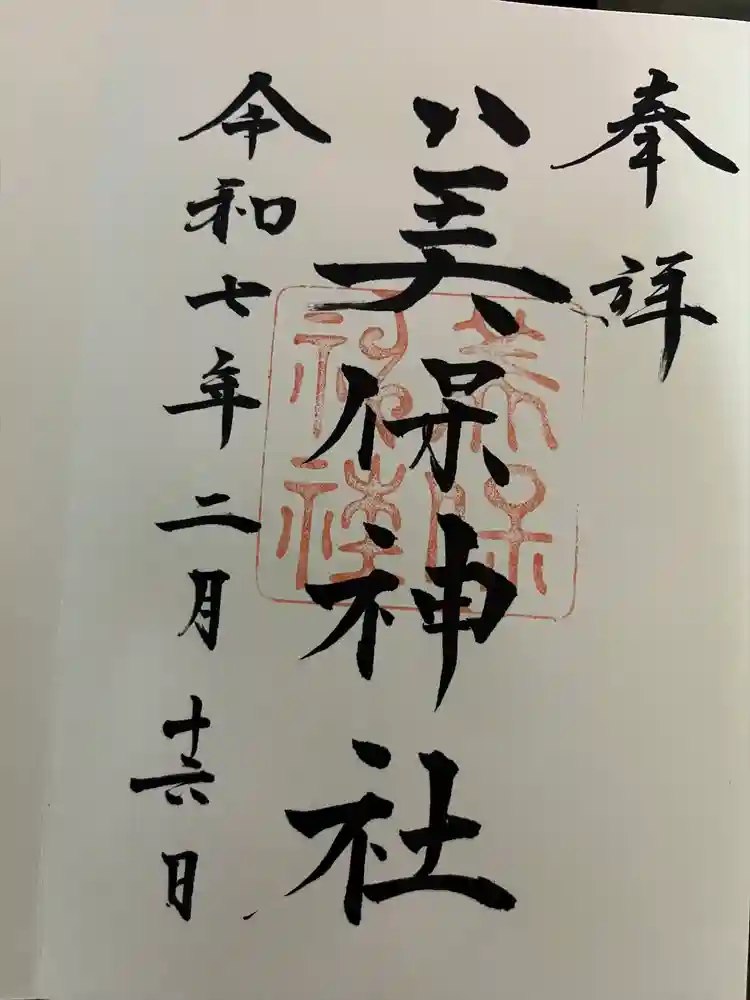 奉拝
美保神社
令和七年二月十六日
美保
神社